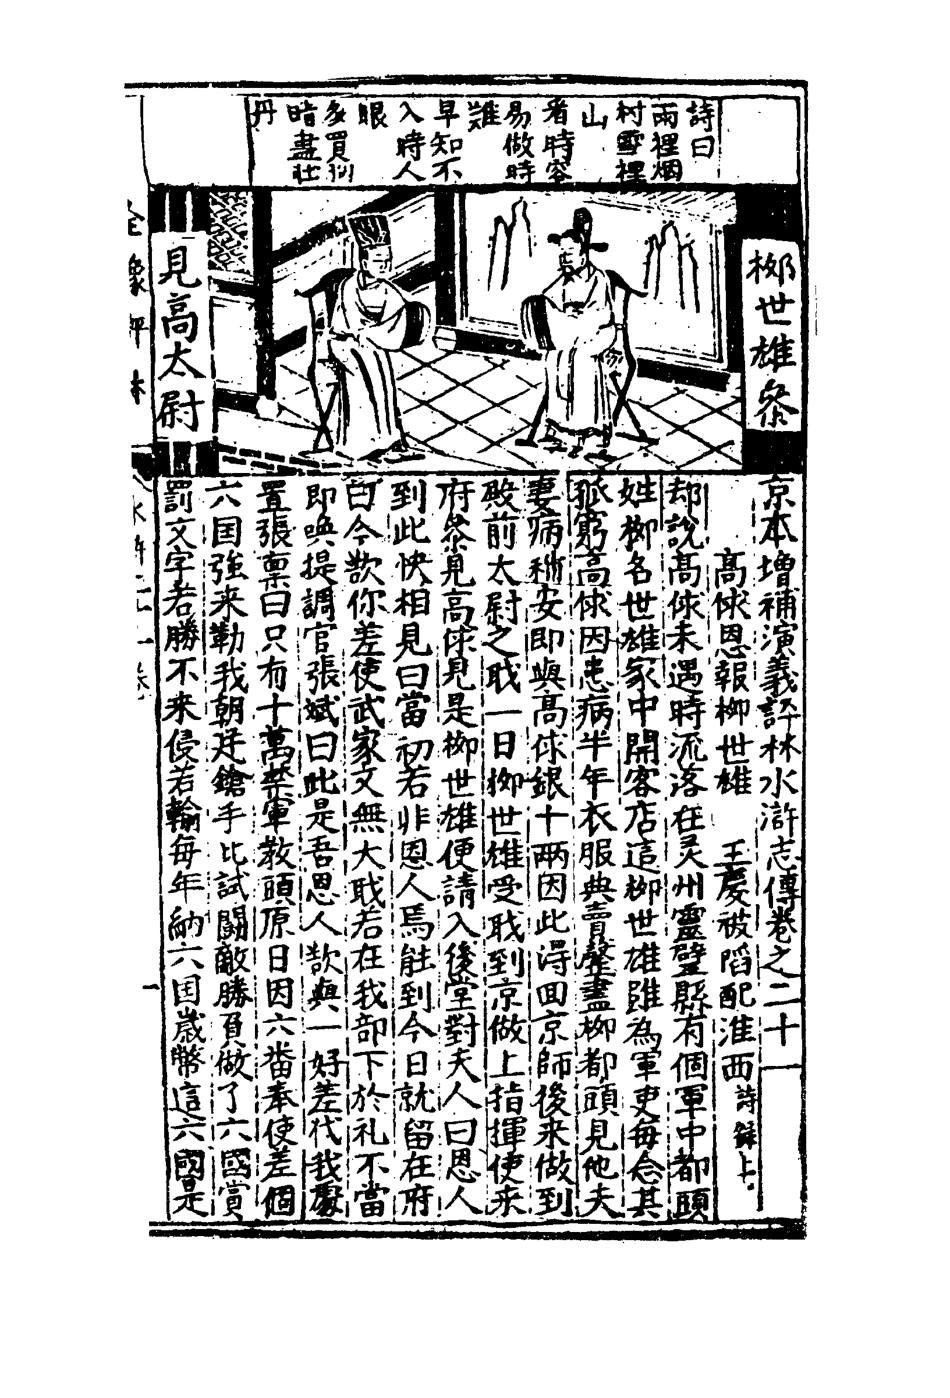 詩曰
雨裡烟
村雪裡
山
看時容
易做時
難
早知不
入時人
眼
多買
暗畫壯
丹
柳世雄叅
見高太尉
京本增補演義評林水滸志傳卷之二十
高俅恩報柳世雄 王慶被陷配淮西 詩錄上
却說高俅未遇時流落在灵州靈璧縣有個軍中都頭
姓柳名世雄家中開客店這柳世雄雖為軍吏每念其
孤窮高俅因患病半年衣服典賣罄盡柳都頭見他夫
妻病稍安即與高俅銀十兩因此得回京師後来做到
殿前太尉之职一日柳世雄受职到京做上指揮使来
府叅見高俅見是柳世雄便請入後堂對夫人曰恩人
到此快相見曰當初若非恩人焉能到今日就留在府
曰今欲你差使武家文無大职若在我部下於礼不當
即喚提調官張斌曰此是吾恩人欲與一好差代我處
置張禀曰只有十萬禁軍教頭原日因六畨奉使差個
六国強来勒我朝廷鎗手比試鬪敵勝負做了六國賞
罰文字若勝不来侵若輸每年納六国歲幣這六國是
全像評林
水滸二十卷
一